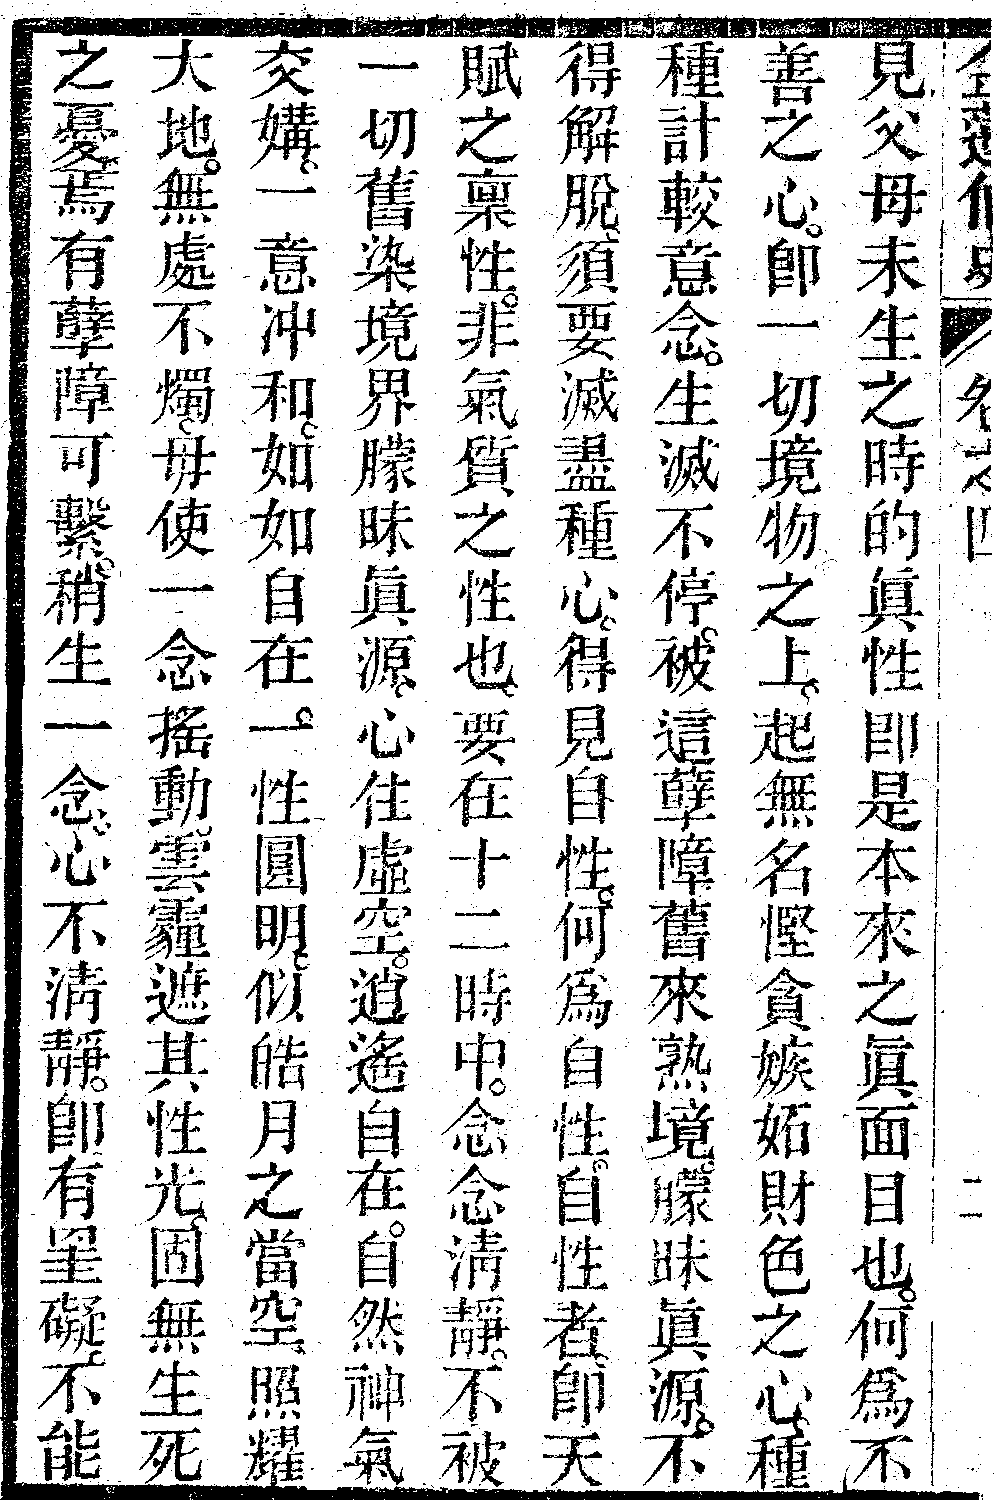 卷之四
二
見父母未生之時的眞性卽是本來之眞面目也。何爲不
善之心。卽一切境物之上。起無名慳貪嫉妬財色之心。種
種計較意念。生滅不停。被這孽障舊來熟境。朦昧眞源。不
得解脫。須要滅盡種心。得見自性。何爲自性。自性者。卽天
賦之稟性。非氣質之性也。要在十二時中。念念淸靜。不被
一切舊染境界朦昧眞源。心住虛空。逍遙自在。自然神氣
交媾。一意冲和。如如自在。一性圓明。似皓月之當空。照耀
大地。無處不燭。毋使一念搖動。雲霾遮其性光。固無生死
之憂。焉有孽障可繫。稍生一念。心不淸靜。卽有罣礙。不能